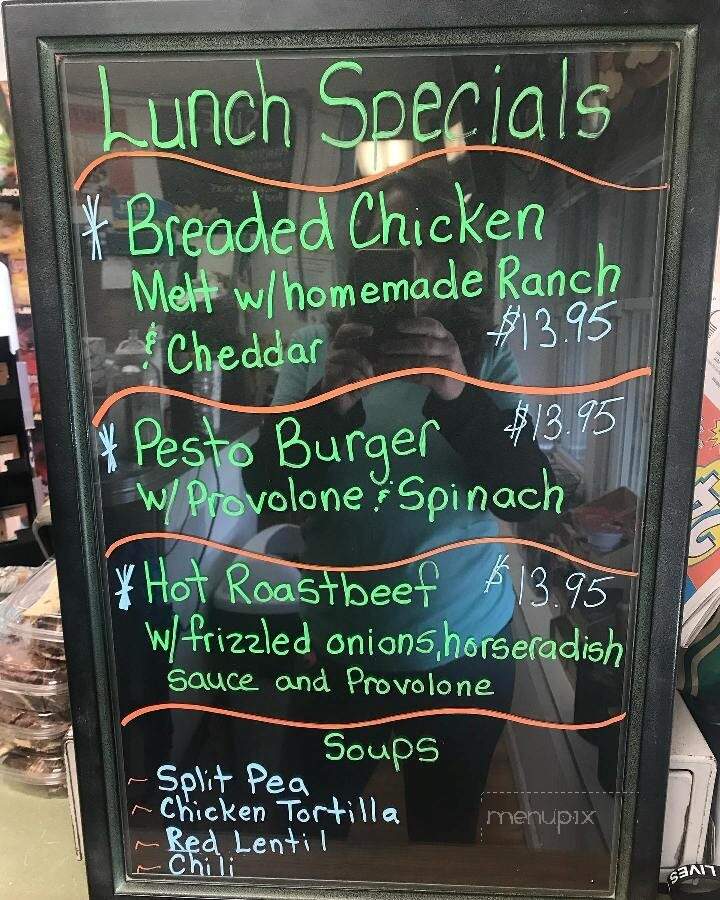 Lunch Specials
* Breaded Chicken
Melt w/homemade Ranch
& Cheddar $13.95
* Pesto Burger $13.95
w/Provolone & Spinach
* Hot Roastbeef $13.95
w/frizzled onions, horseradish
sauce and Provolone
Soups
~ Split Pea
~ Chicken Tortilla
~ Red Lentil
~ Chili
menupix
LIVES